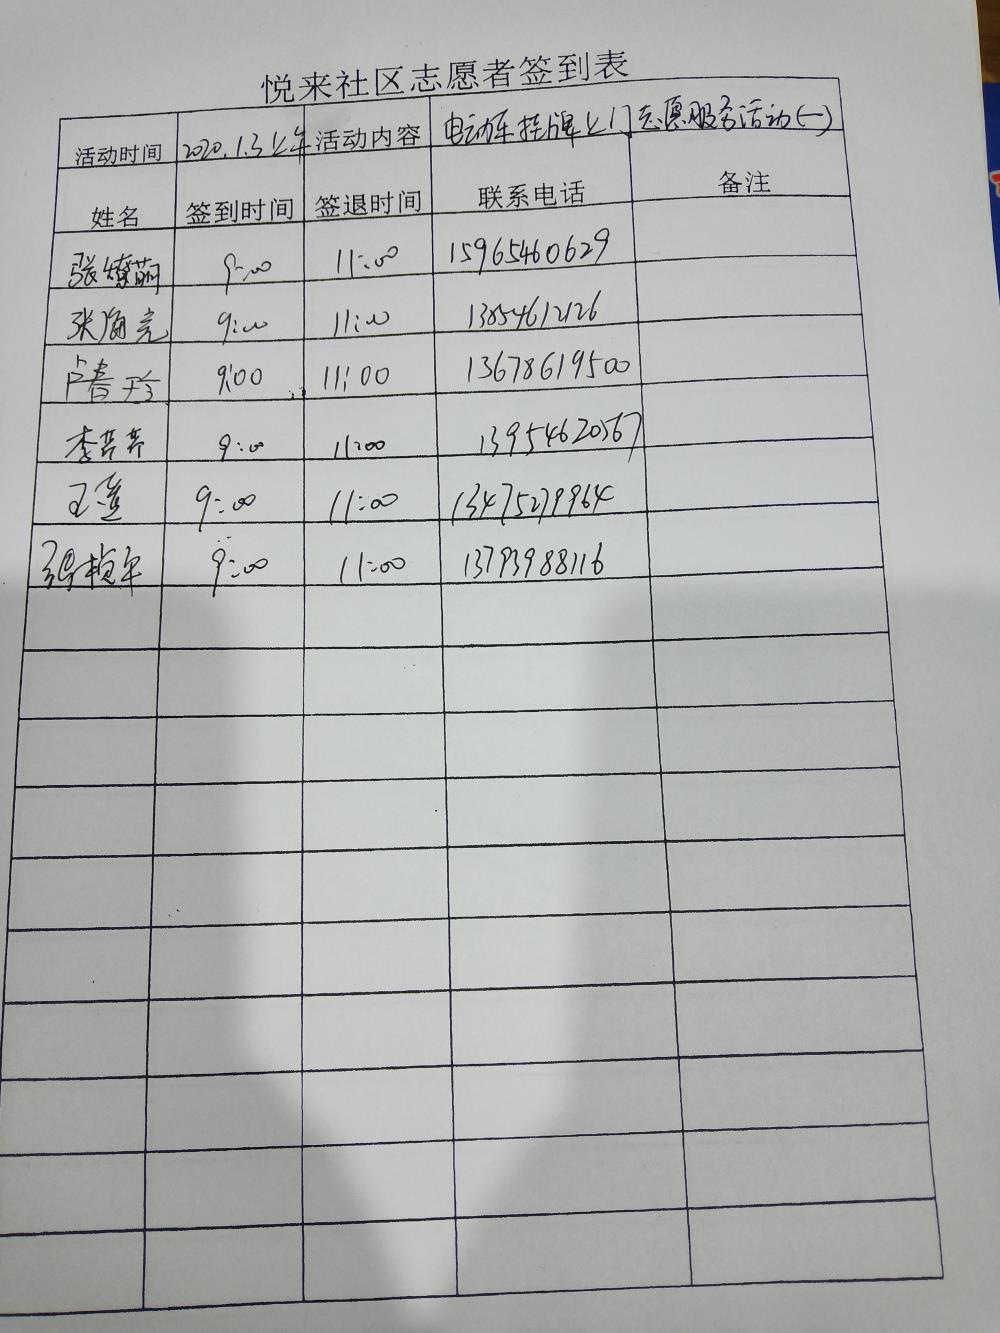 悦来社区志愿者签到表
活动时间 2020.1.3上午 活动内容 电动车挂牌上门志愿服务活动(一)
姓名 签到时间 签退时间 联系电话 备注
张 9:00 11:00 15965460629
张海亮 9:00 11:00 13854612126
卢春玲 9:00 11:00 13678619500
李芹芹 9:00 11:00 13954620567
王莲 9:00 11:00 13475279964
9:00 11:00 13793988116